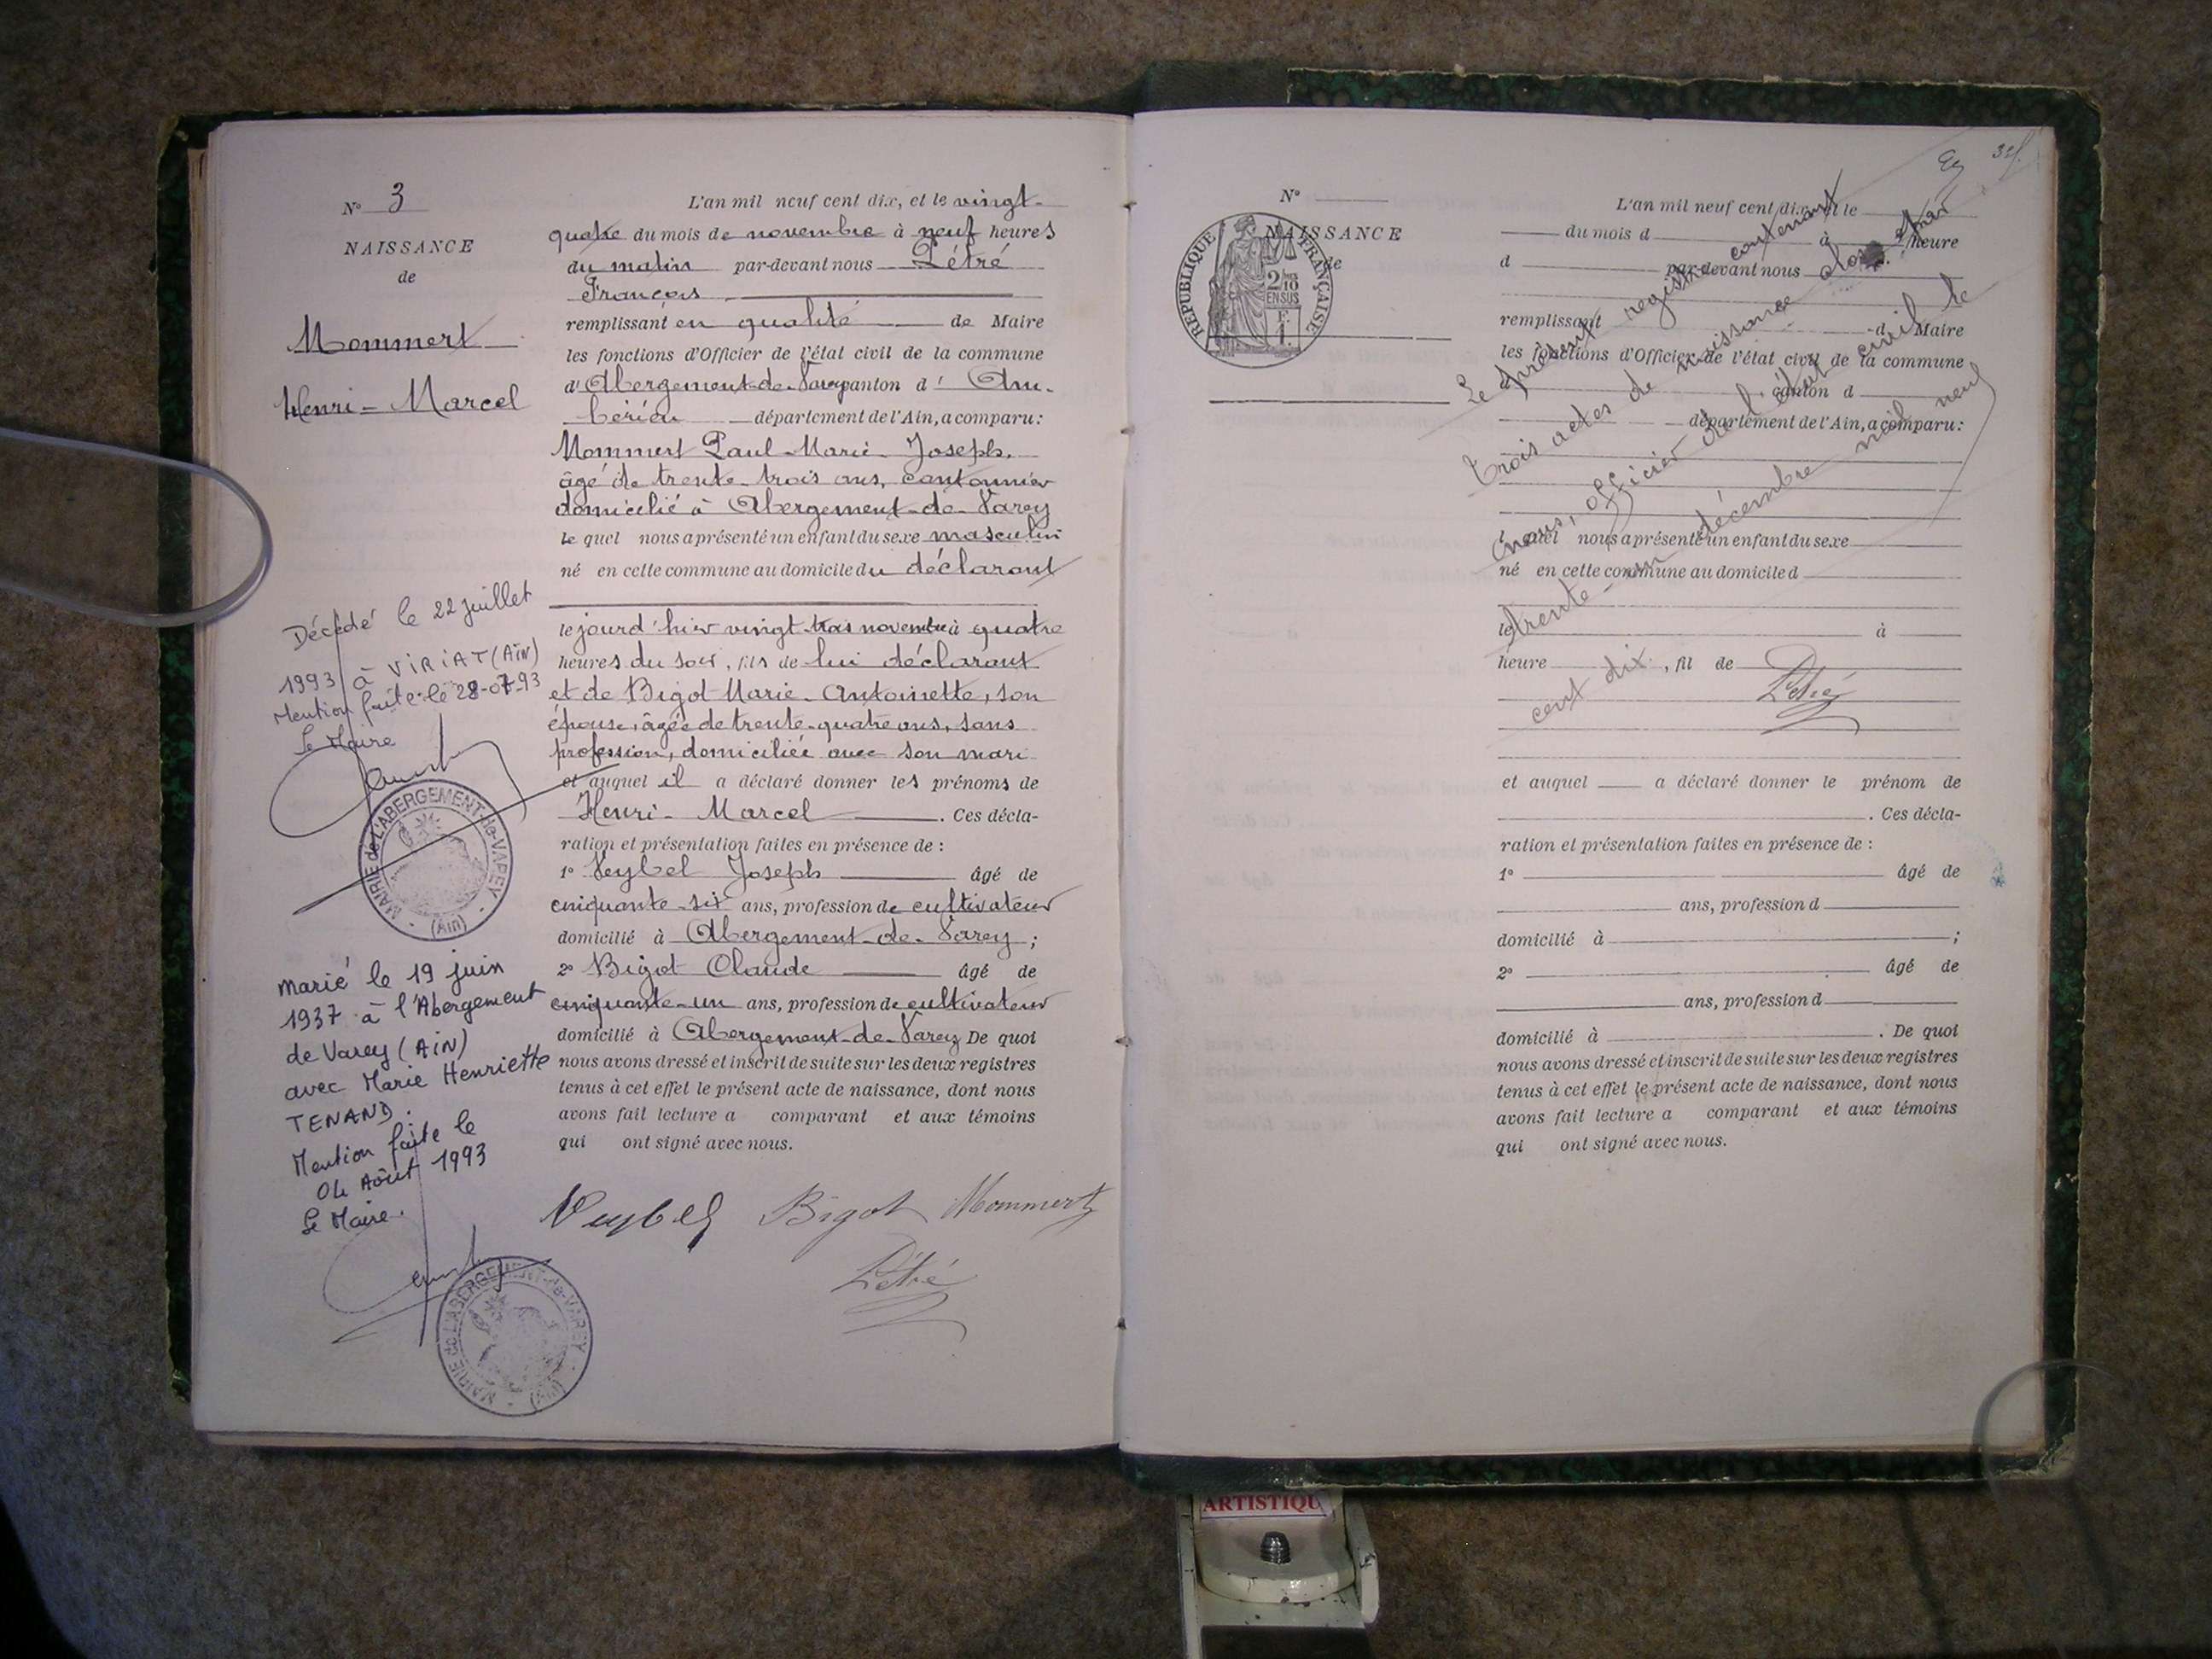 N° 3
NAISSANCE
de
Mommert
Henri - Marcel
Décédé le 22 juillet
1993 à VIRIAT (AIN)
Mention faite le 28-07-93
Le Maire
MAIRIE de L'ABERGEMENT-de-VAREY
(Ain)
Marié le 19 juin
1937 à l'Abergement
de Varey (AIN)
avec Marie Henriette
TENAND.
Mention faite le
04 Août 1993
Le Maire.
MAIRIE de L'ABERGEMENT-de-VAREY
(Ain)
L'an mil neuf cent dix, et le vingt-
quatre du mois de novembre à neuf heures
du matin par-devant nous Létré
François
remplissant en qualité de Maire
les fonctions d'Officier de l'état civil de la commune
d'Abergement-de-Varey canton d'Am-
bérieu département de l'Ain, a comparu:
Mommert Paul-Marie-Joseph,
âgé de trente-trois ans, cantonnier
domicilié à Abergement-de-Varey
le quel nous a présenté un enfant du sexe masculin
né en cette commune au domicile du déclarant
le jourd'hier vingt trois novembre à quatre
heures du soir, fils de lui déclarant
et de Bigot Marie-Antoinette, son
épouse, âgée de trente-quatre ans, sans
profession, domiciliée avec son mari
et auquel il a déclaré donner les prénoms de
Henri-Marcel. Ces décla-
ration et présentation faites en présence de :
1° Veybel Joseph âgé de
cinquante-six ans, profession de cultivateur
domicilié à Abergement-de-Varey ;
2° Bigot Claude âgé de
cinquante-un ans, profession de cultivateur
domicilié à Abergement-de-Varey De quoi
nous avons dressé et inscrit de suite sur les deux registres
tenus à cet effet le présent acte de naissance, dont nous
avons fait lecture a comparant et aux témoins
qui ont signé avec nous.
Veybel Bigot Mommert
Létré
34
N°
NAISSANCE
de
REPUBLIQUE FRANÇAISE
2/10
EN SUS
F.
1.
L'an mil neuf cent dix, et le
du mois d à heure
d par-devant nous
remplissant d Maire
les fonctions d'Officier de l'état civil de la commune
d canton d
département de l'Ain, a comparu:
lequel nous a présenté un enfant du sexe
né en cette commune au domicile d
le à
heure , fil de
et auquel a déclaré donner le prénom de
. Ces décla-
ration et présentation faites en présence de :
1° âgé de
ans, profession d
domicilié à ;
2° âgé de
ans, profession d
domicilié à . De quoi
nous avons dressé et inscrit de suite sur les deux registres
tenus à cet effet le présent acte de naissance, dont nous
avons fait lecture a comparant et aux témoins
qui ont signé avec nous.
Le présent registre contenant
trois actes de naissance clos par
nous, officier de l'état civil le
trente-un décembre mil neuf
cent dix
Létré
ARTISTIQU